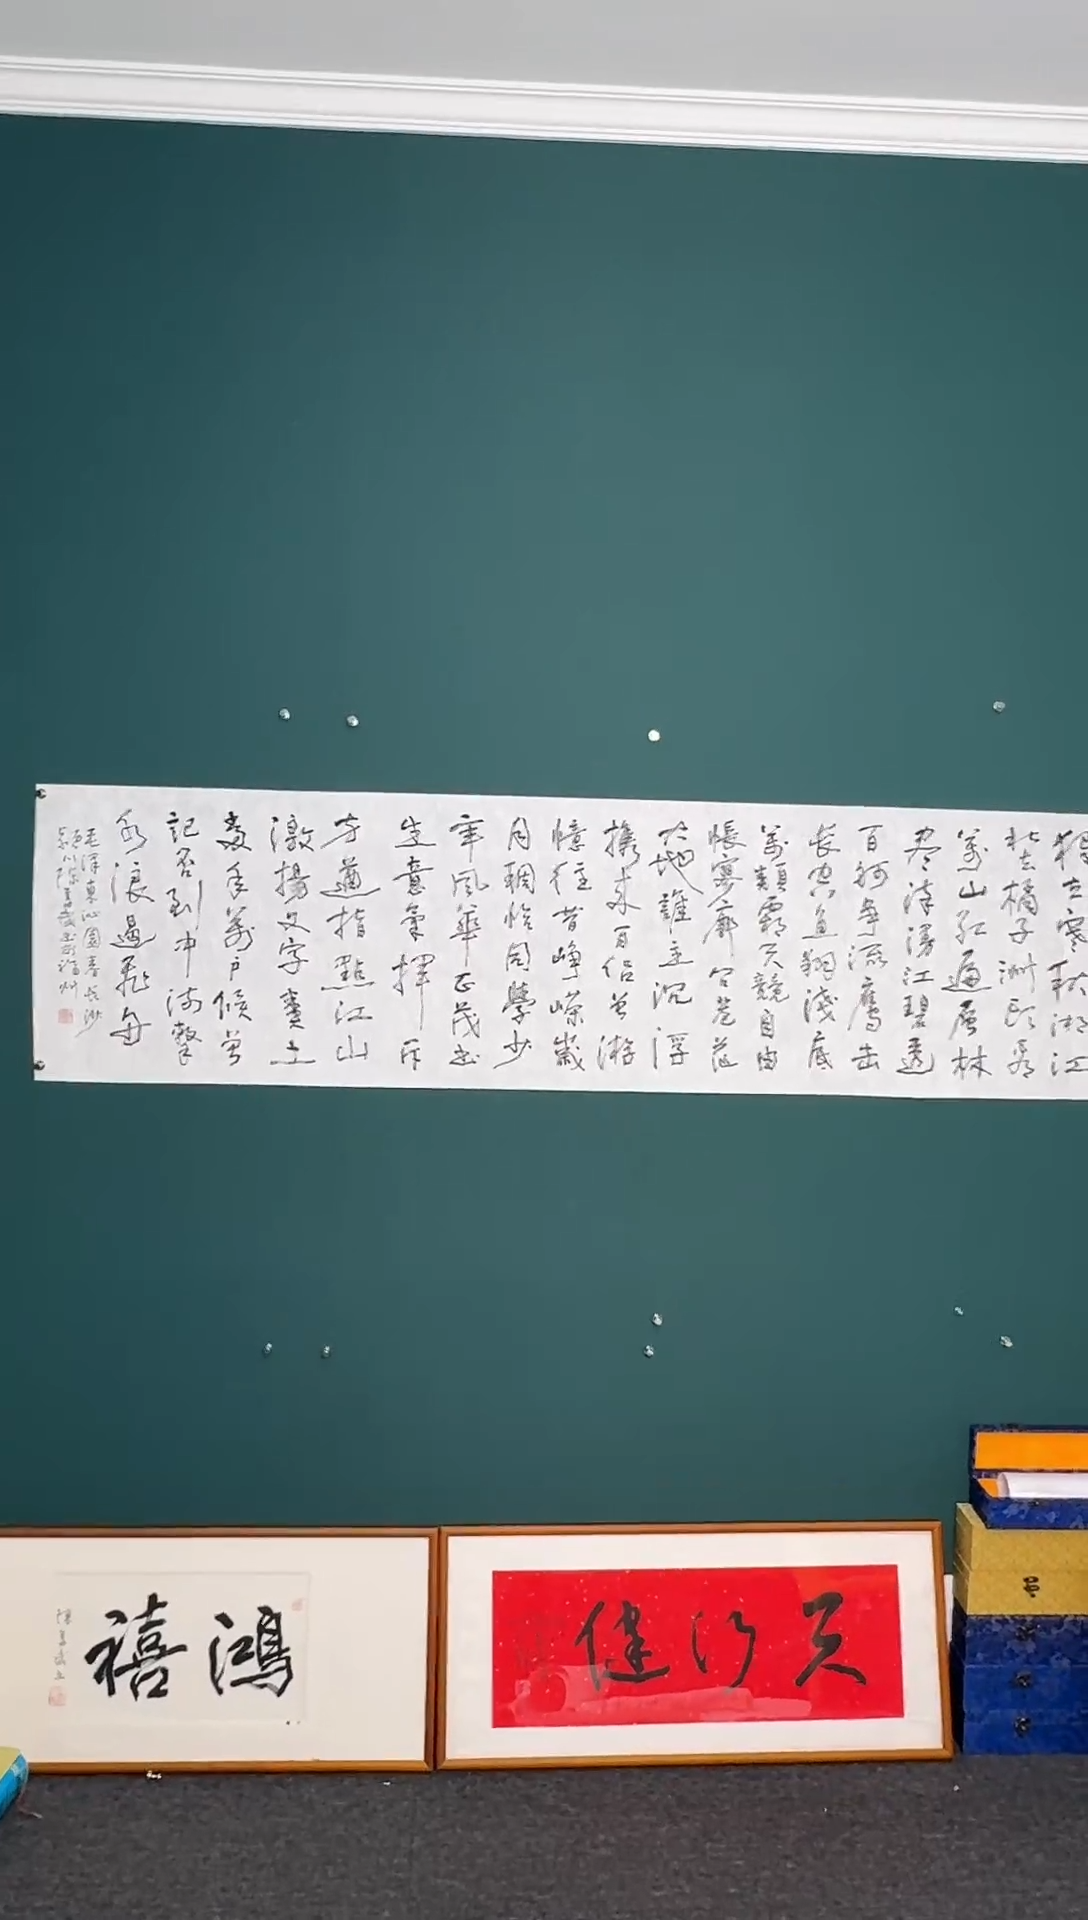 獨立寒秋湘江
北去橘子洲頭看
萬山紅遍層林
盡染漫江碧透
百舸爭流鷹击
長空魚翔淺底
萬類霜天競自由
悵寥廓問蒼茫
大地誰主沉浮
携来百侣曾游
憶往昔崢嶸歲
月稠恰同學少
年風華正茂书
生意氣揮斥
方遒指點江山
激揚文字糞土
當年萬戶侯曾
記否到中流擊
水浪遏飛舟
毛澤東沁園春長沙
天行健
鴻禧